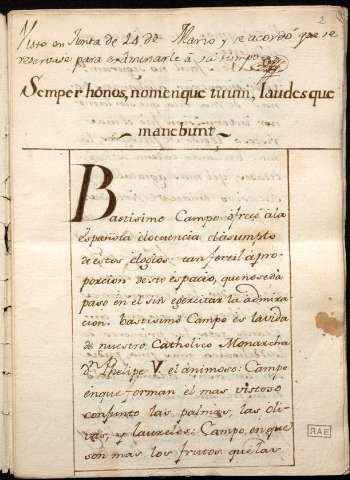 2
Visto en Junta de 24 de Marzo y se acordó que se
reservase para examinarle à su tiempo
Semper honos, nomenque tuum, laudesque
manebunt
Bastisimo Campo ofreçe à la
española elocuencia el asumpto
de estos elogios: tan fertil a pro-
porcion de su espacio, que no se da
paso en el sin exercitar la admira
cion. Bastisimo Campo es la vida
de nuestro Catholico Monarcha
Dn. Phelipe V. el animoso: Campo
en que forman el mas vistoso
conjunto las palmas, las oli
vas, y laureles: Campo, en que
son mas los frutos que las
RAE